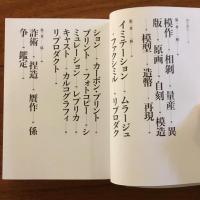 模作 ・ 相剝 ・ 量産 ・ 異
版 ・ 原画 ・ 自刻 ・ 模造
・ 模型 ・ 造幣 ・ 再現
イミテーション ・ ムラージュ
・ ファクシミル ・ リプロダク
ション ・ カーボン・プリント
・ プリント ・ フォトコピー ・ シ
ミュレーション ・ レプリカ ・
キャスト ・ カルコグラフィ
・ リプロダクト
詐術 ・ 捏造 ・ 贋作 ・ 係
争 ・ 鑑定